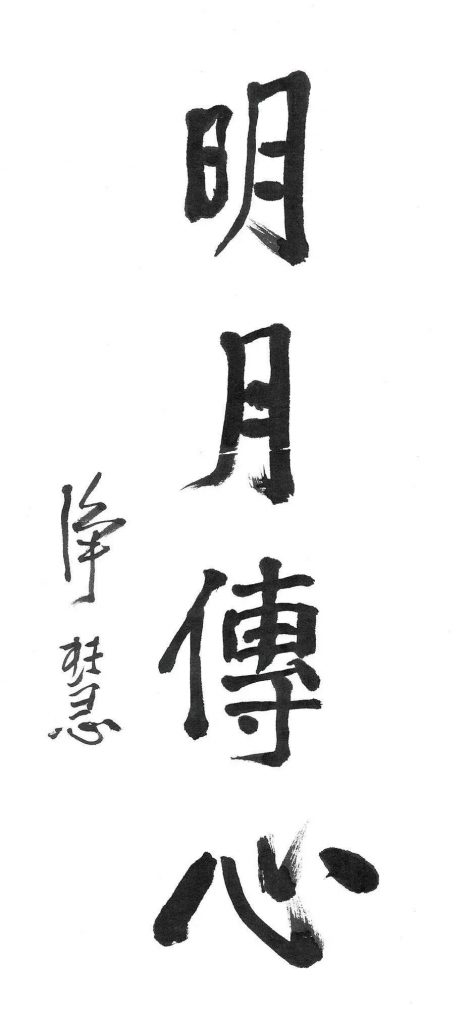 明月傳心
净慧